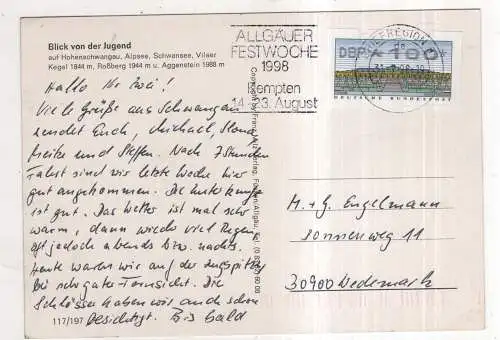 Blick von der Jugend
auf Hohenschwangau, Alpsee, Schwansee, Vilser
Kegel 1844 m, Roßberg 1944 m u. Aggenstein 1988 m
Hallo Ihr Zwei!
Viele Grüße aus Schwangau
sendet Euch, Michael,
Heike und Steffen. Nach 7 Stunden
Fahrt sind wir letzte Woche hier
gut angekommen. Die Unterkunft
ist gut. Das Wetter ist mal sehr
warm, dann wieder viel Regen,
oft jedoch abends bzw. nachts.
Heute waren wir auf der Zugspitze
bei sehr guter Fernsicht. Die
Schlösser haben wir auch schon
besichtigt. Bis bald
117/197
ALLGÄUER
FESTWOCHE
1998
Kempten
14.-23. August
DBP
DEUTSCHE BUNDESPOST
M. + G. Engelmann
Sonnenweg 11
30900 Wedemark